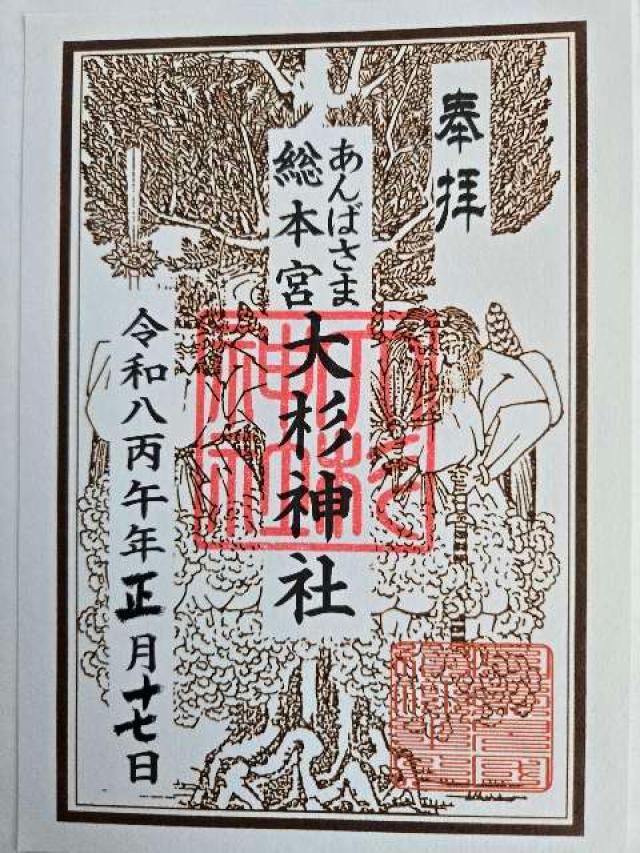 奉拝
あんばさま
総本宮
大杉神社
令和八丙午年正月十七日